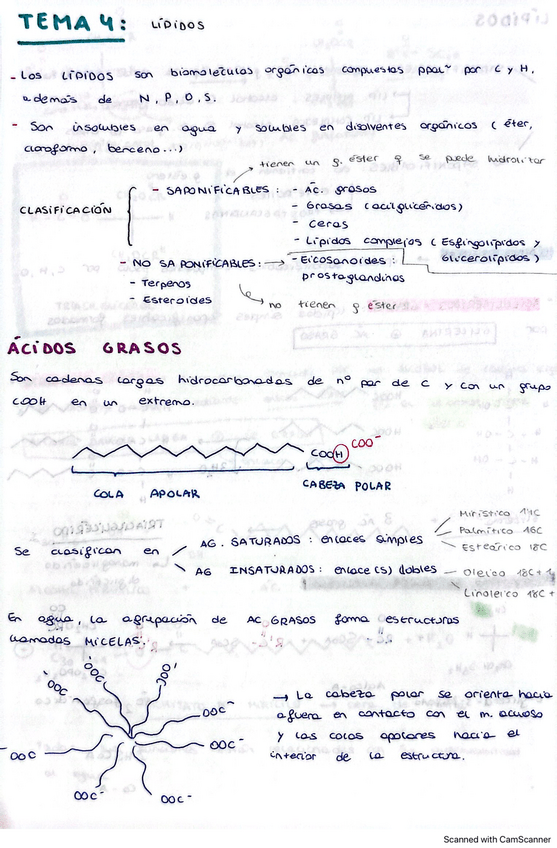 TEMA 4: LÍPIDOS
- Los LÍPIDOS son biomoléculas orgánicas compuestas ppal^te por C y H,
además de N, P, O, S.
- Son insolubles en agua y solubles en disolventes orgánicos (éter,
cloroformo, benceno...)
tienen un g. éster q se puede hidrolizar
CLASIFICACIÓN
- SAPONIFICABLES: - Ác. grasos
- Grasas (acilglicéridos)
- Ceras
- Lípidos complejos (Esfingolípidos y
Glicerolípidos)
- NO SAPONIFICABLES: → - Eicosanoides:
prostaglandinas
- Terpenos
- Esteroides
no tienen g éster
ÁCIDOS GRASOS
Son cadenas largas hidrocarbonadas de nº par de C y con un grupo
COOH en un extremo.
COOH COO⁻
COLA APOLAR CABEZA POLAR
Se clasifican en
AG. SATURADOS: enlaces simples
Mirístico 14C
Palmítico 16C
Esteárico 18C
AG INSATURADOS: enlace(s) dobles
Oleico 18C + 1
Linoleico 18C +
En agua, la agrupación de AC. GRASOS forma estructuras
llamadas MICELAS:
OOC⁻
OOC⁻
OOC⁻
OOC⁻
OOC⁻
⁻OOC
OOC⁻
OOC⁻
→ La cabeza polar se orienta hacia
afuera en contacto con el m. acuoso
y las colas apolares hacia el
interior de la estructura.
Scanned with CamScanner